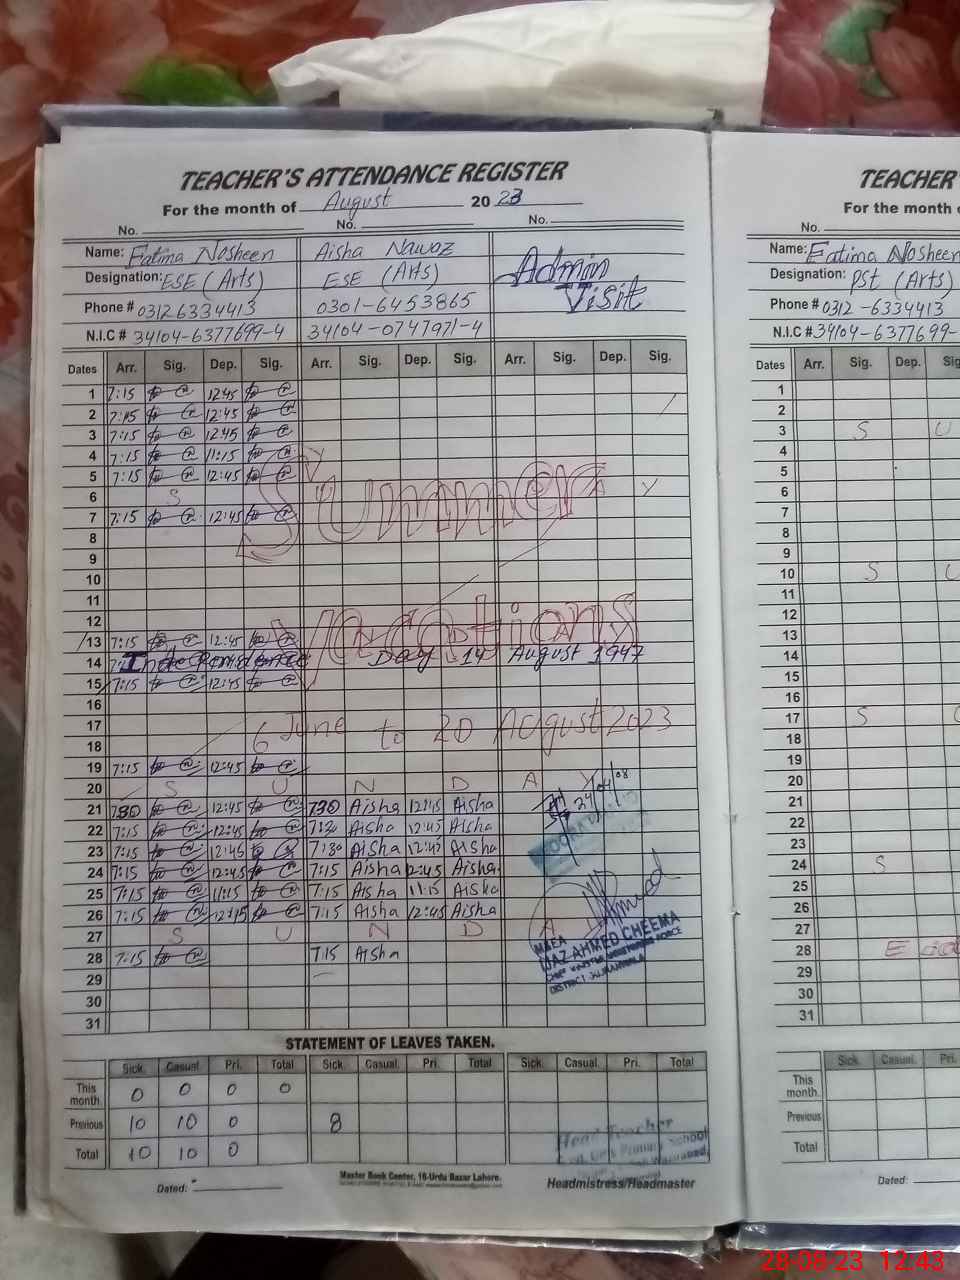 TEACHER'S ATTENDANCE REGISTER
For the month of August 2023
No. No. No.
Name: Fatima Nosheen Aisha Nawaz Admin
Designation: ESE (Arts) ESE (Arts) Visit
Phone # 03126334413 0301-6453865
N.I.C # 34104-6377699-4 34104-0747971-4
Dates Arr. Sig. Dep. Sig. Arr. Sig. Dep. Sig. Arr. Sig. Dep. Sig.
1 7:15 12:45
2 7:15 12:45
3 7:15 12:45
4 7:15 11:15
5 7:15 12:45
6 S U N D A Y
Summer
7 7:15 12:45
8
9
10
11
12
Vacations
13 7:15 12:45 N D A
14 Independence Day 14 August 1947
15 7:15 12:45
16
17 6 June to 20 August 2023
18
19 7:15 12:45
20 S U N D A Y
21 7:30 12:45 7:30 Aisha 12:45 Aisha
22 7:15 12:45 7:30 Aisha 12:45 Aisha
23 7:15 12:45 7:30 Aisha 12:45 Aisha
24 7:15 12:45 7:15 Aisha 12:45 Aisha
25 7:15 11:15 7:15 Aisha 11:15 Aisha
26 7:15 12:45 7:15 Aisha 12:45 Aisha
27 S U N D A
28 7:15 7:15 Aisha
29
30
31
MEA
IJAZ AHMED CHEEMA
CHIEF MINISTER MONITORING FORCE
DISTRICT GUJRANWALA
STATEMENT OF LEAVES TAKEN.
Sick. Casual. Pri. Total Sick. Casual. Pri. Total Sick. Casual. Pri. Total
This month. 0 0 0 0
Previous 10 10 0 8
Total 10 10 0
Head Teacher
Primary School
Dated:
Master Book Center, 16-Urdu Bazar Lahore.
Headmistress/Headmaster
TEACHER'
For the month
No.
Name: Fatima Nosheen
Designation: PST (Arts)
Phone # 0312-6334413
N.I.C # 34104-6377699-
Dates Arr. Sig. Dep.
1
2
3 S U
4
5
6
7
8
9
10 S U
11
12
13
14
15
16
17 S
18
19
20
21
22
23
24 S
25
26
27
28
29
30
31
Sick. Casual. Pri.
This month.
Previous
Total
Dated:
28-08-23 12:43